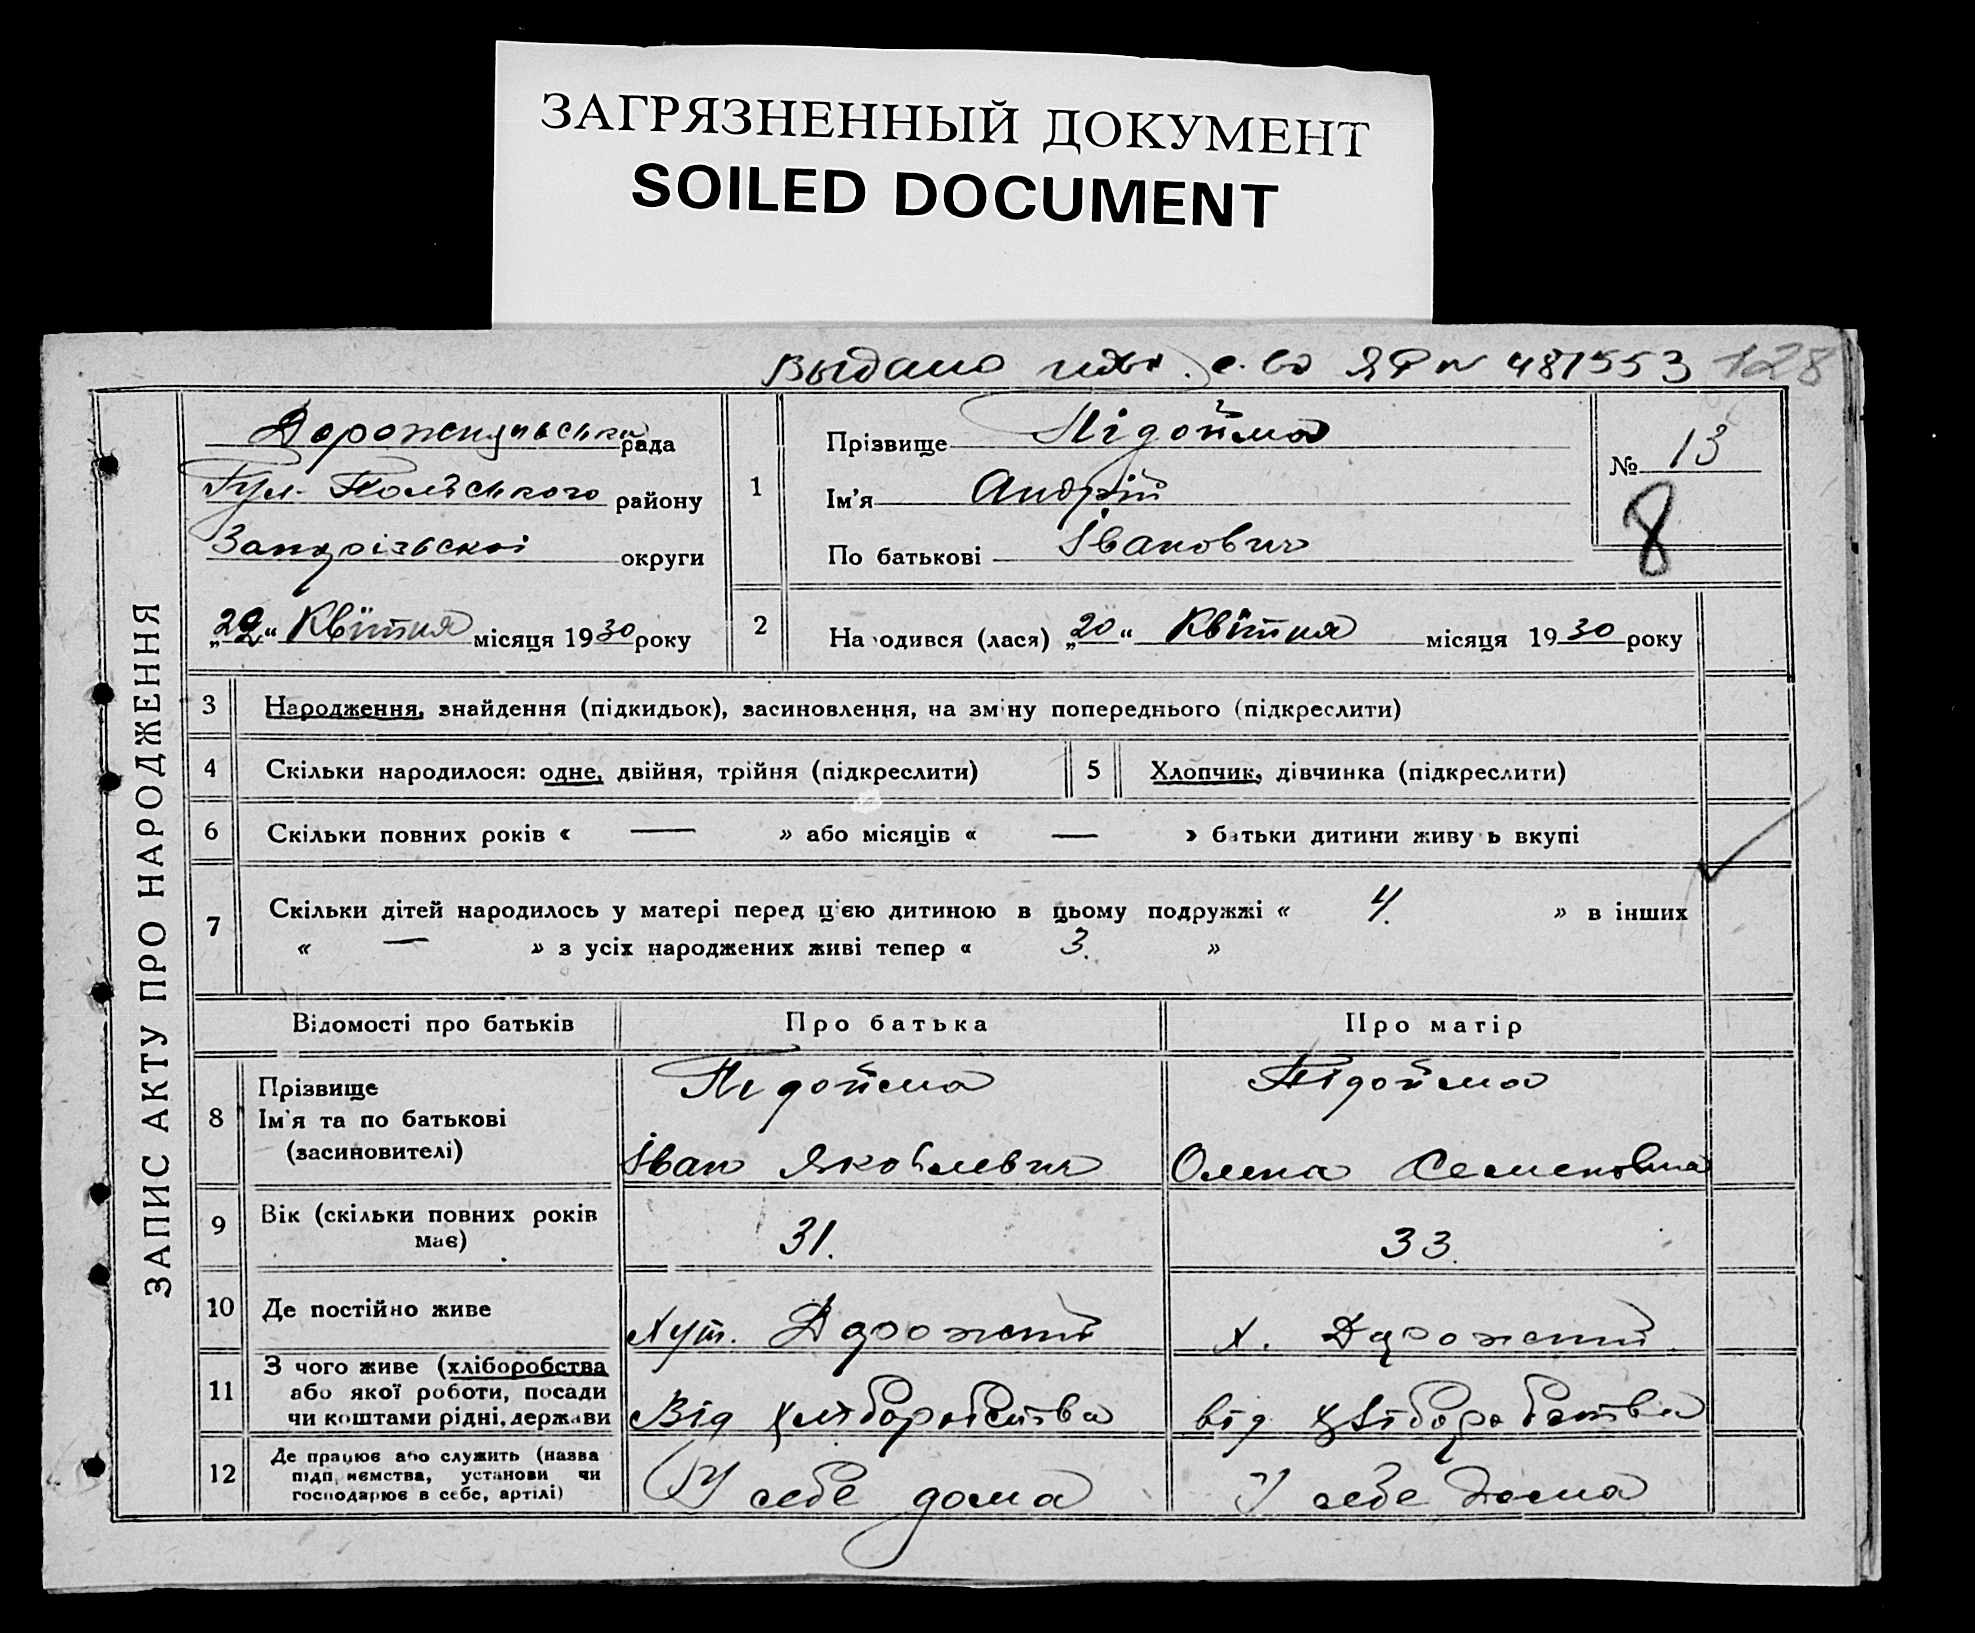 ЗАГРЯЗНЕННЫЙ ДОКУМЕНТ
SOILED DOCUMENT
Выдано с. во ЯФ № 481553 128
ЗАПИС АКТУ ПРО НАРОДЖЕННЯ
рада
Гул-Польського району
округи
„22“ Квітня місяця 1930 року
1
Прізвище Підойма
Ім'я Андрій
По батькові Іванович
№ 13
8
2 Народився (лася) „20“ Квітня місяця 1930 року
3 Народження, знайдення (підкидьок), засиновлення, на зміну попереднього (підкреслити)
4 Скільки народилося: одне, двійня, трійня (підкреслити) 5 Хлопчик, дівчинка (підкреслити)
6 Скільки повних років « — » або місяців « — » батьки дитини живуть вкупі
7 Скільки дітей народилось у матері перед цією дитиною в цьому подружжі « 4. » в інших
« — » з усіх народжених живі тепер « 3. »
Відомості про батьків Про батька Про матір
8 Прізвище Підойма Підойма
Ім'я та по батькові
(засиновителі) Іван Яковлевич Олена Семеновна
9 Вік (скільки повних років
має) 31. 33.
10 Де постійно живе Хут. Х.
11 З чого живе (хліборобства
або якої роботи, посади
чи коштами рідні, держави Від хліборобства від хліборобства
12 Де працює або служить (назва
підприємства, установи чи
господарює в себе, артілі) У себе дома У себе дома